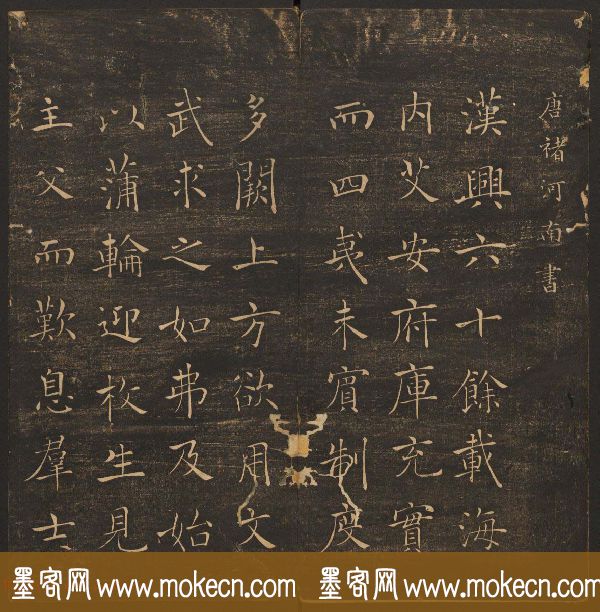 唐褚河南書
漢興六十餘載海
内艾安府庫充實
而四夷未賓制度
多闕上方欲用文
武求之如弗及始
以蒲輪迎枚生見
主父而歎息羣士
墨客网 www.mokecn.com 墨客网 www.mokecn.com